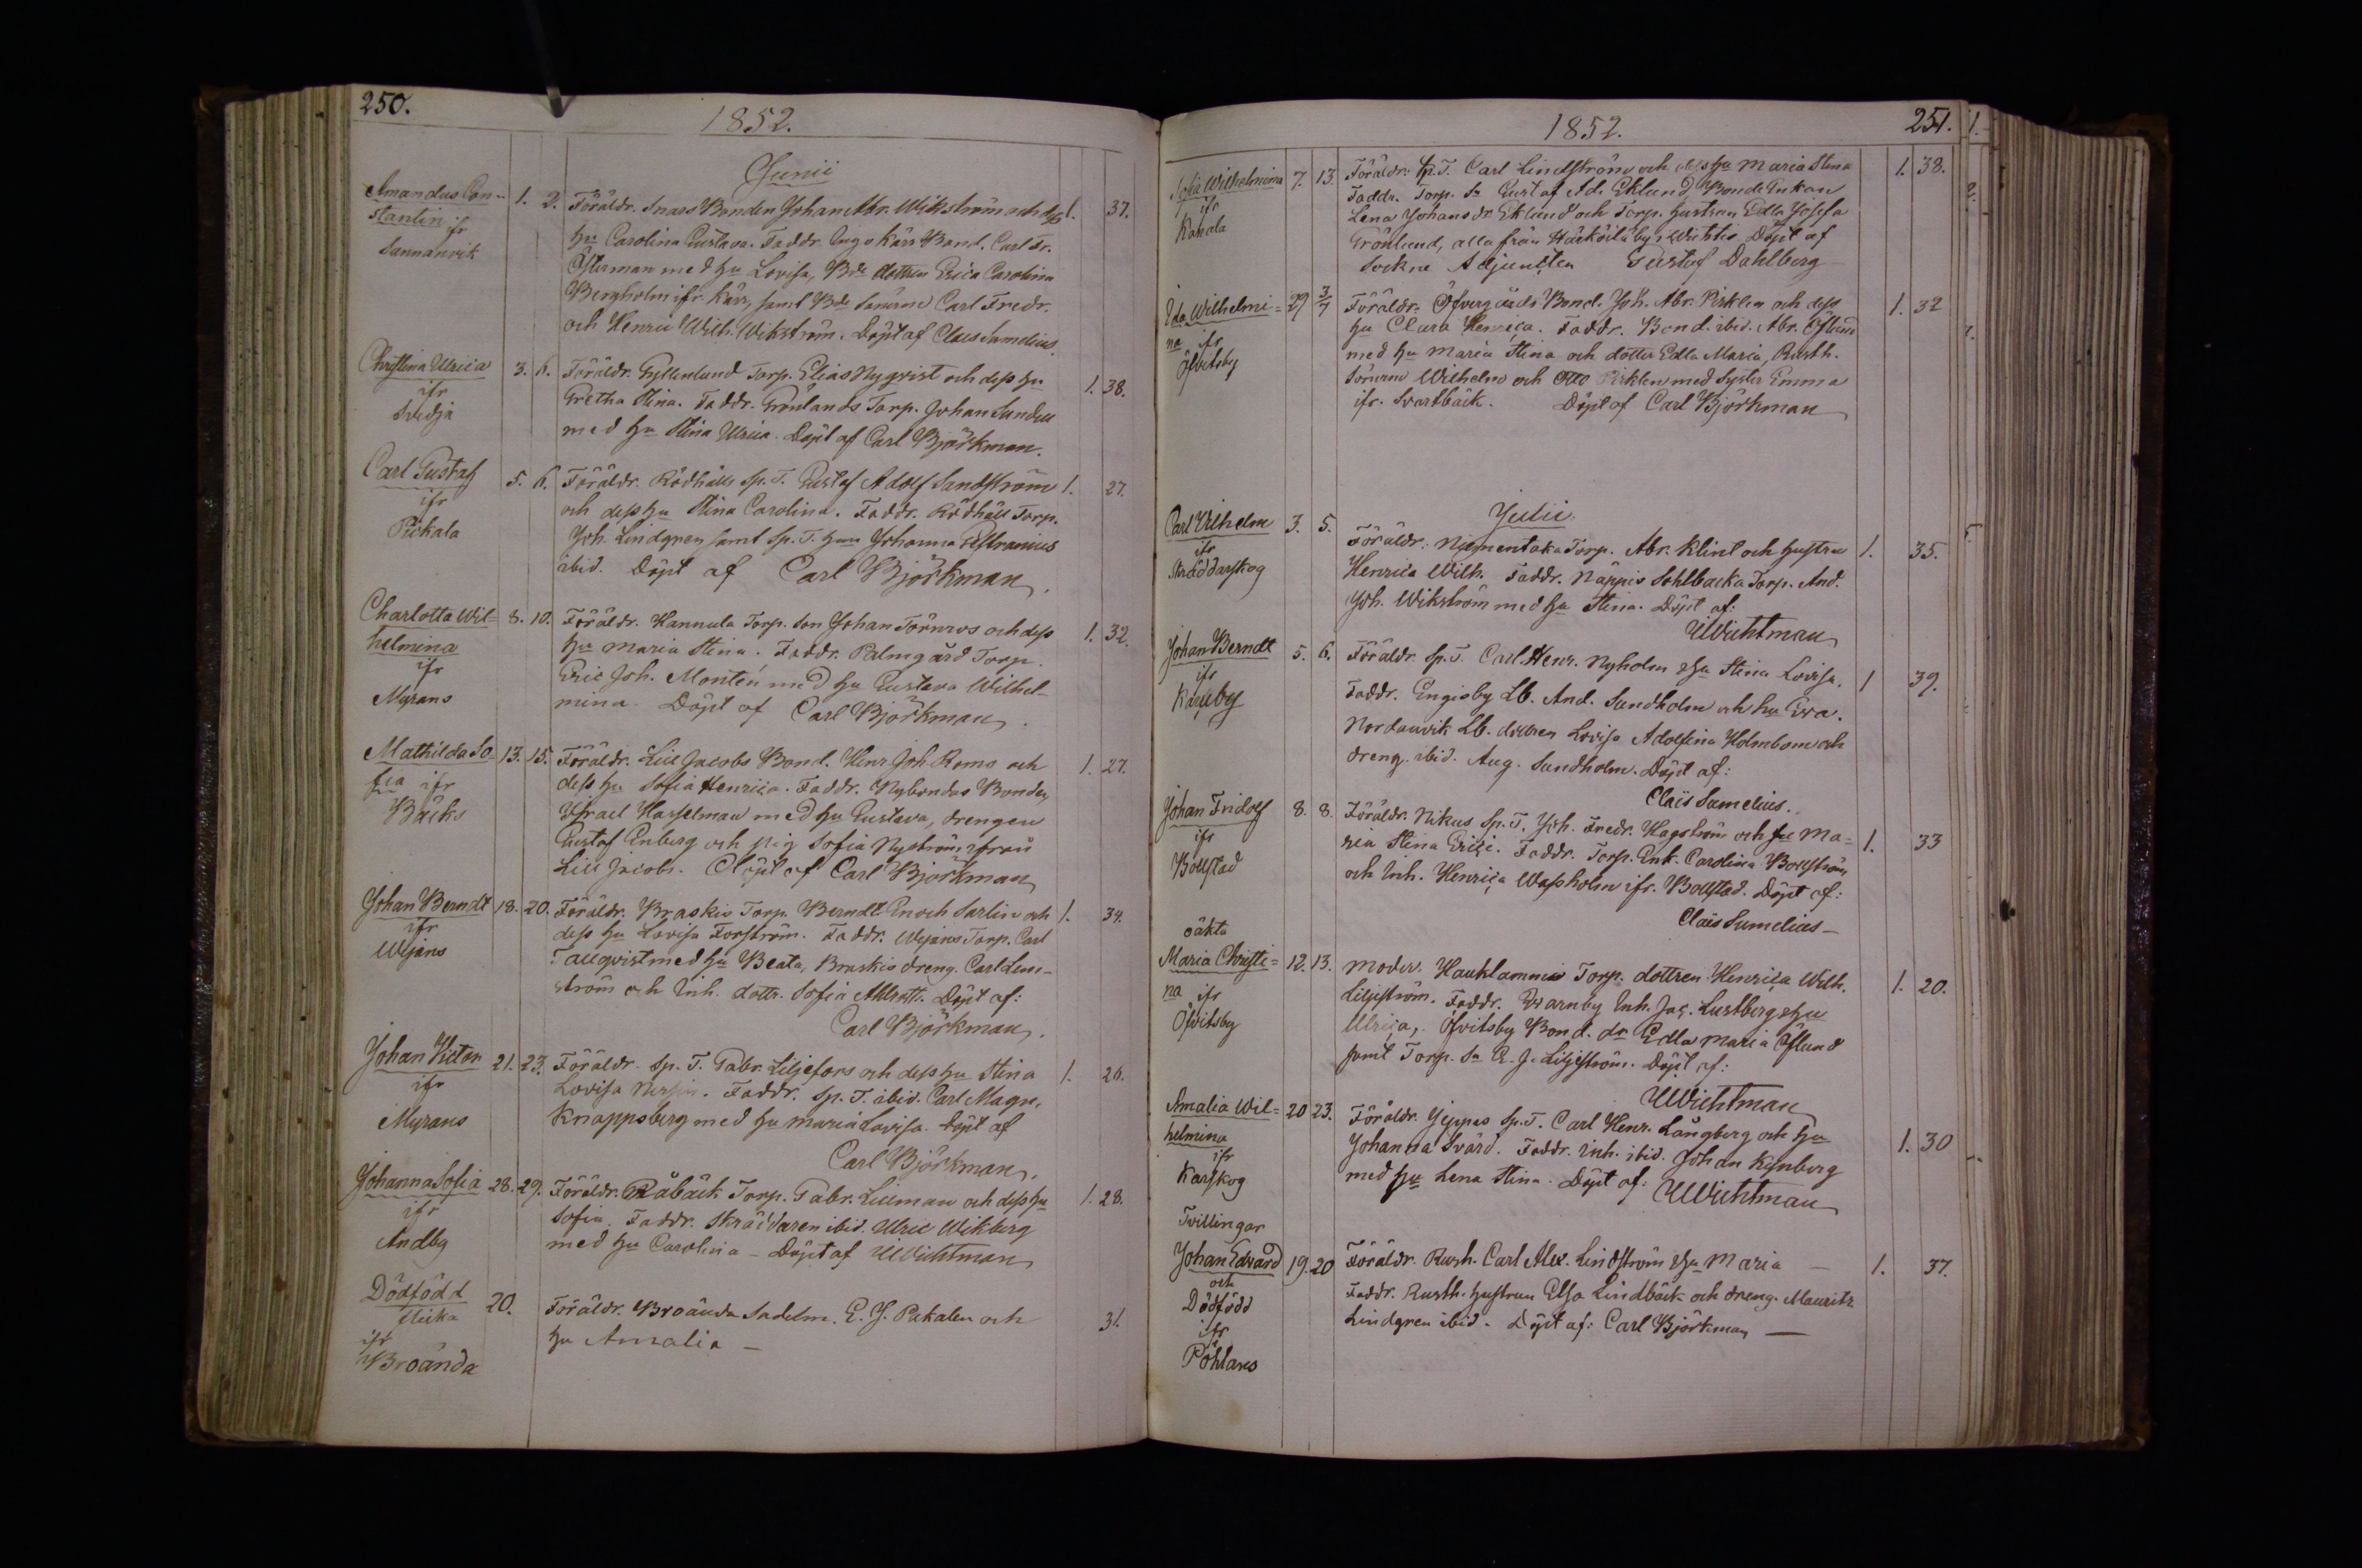 250.
1852.
Junii
Amandus Con-
stantin ifr
Sannanvik
1. 2. Föräldr. Snars Bonden Johan Abr. Wikström och dess 1. 37.
hu Carolina Gustava. Faddr. Ingo Kärr Bond. Carl Fr.
Österman med hu Lovisa, Bde dottren Erica Carolina
Bergholm ifr Kärr, samt Bde sönerne Carl Fredr.
och Henric Wilh. Wikström. Döpt af Claes Sumelius.
Christina Ulrica
ifr
Svidja
3. 6. Föräldr. Gyllenlund Torp. Elias Nyqvist och dess hu 1. 38.
Gretha Stina. Faddr. Grönlands Torp. Johan Sundell
med hu Stina Ulrica. Döpt af Carl Björkman.
Carl Gustaf
ifr
Pickala
5. 6. Föräldr. Rödhälls Sp. T. Gustaf Adolf Sandström 1. 27.
och dess hu Stina Carolina. Faddr. Rödhäll Torp.
Joh. Lindgren samt Sp. T. hun Johanna
ibid. Döpt af Carl Björkman.
Charlotta Wil=
helmina
ifr
Myrans
8. 10. Föräldr. Hannula Torp. son Johan Törnroos och dess 1. 32.
hu Maria Stina. Faddr. Palmgård Torp.
Eric Joh. Montén med hu Gustava Wilhel-
mina. Döpt af Carl Björkman.
Mathilda So=
fia ifr
Bäcks
13. 15. Föräldr. Lill Jacobs Bond. Henr. Joh. Roms och 1. 27.
dess hu Sofia Henrica. Faddr. Nybondas Bonden
Israel Hasselman med hu Gustava, drengen
Gustaf Enberg och pig Sofia Nyström ifrån
Lill Jacobs. Döpt af Carl Björkman
Johan Berndt
ifr
Wejans
18. 20. Föräldr. Braskis Torp. Berndt Enoch Sarlin och 1. 34.
dess hu Lovisa Forsström. Faddr. Wejans Torp. Carl
Tallqvist med hu Beata, Braskis dreng. Carl Lem-
ström och Inh. dottr. Sofia Ahlrott. Döpt af:
Carl Björkman.
Johan Victor
ifr
Myrans
21. 23. Föräldr. Sp. T. Gabr. Liljefors och dess hu Stina 1. 26.
Lovisa. Faddr. Sp. T. ibid. Carl Magn.
Knappsberg med hu Maria Lovisa. Döpt af
Carl Björkman.
Johanna Sofia
ifr
Andby
28. 29. Föräldr. Råbäck Torp. Gabr. Lillman och dess hu 1. 28.
Sofia. Faddr. Skräddaren ibid. Ulric Wikberg
med hu Carolina – Döpt af UWichtman
Dödfödd
flicka
ifr
Broända
20. Föräldr. Broända Sadelm. E. J. Pakalen och 31.
hu Amalia –
1852.
251.
Sofia Wilhelmina
ifr
Kahala
7. 13. Föräldr. Sp. T. Carl Lindström och dess hu Maria Stina 1. 38.
Faddr. Torp. Sn Gustaf Ad. Eklund Bonde Enkan
Lena Johans dr Eklund och Torp. hustrun Edla Josefa
Grönlund, alla från Härköilä by i Wichtis Döpt af
Sockne Adjuncten Gustaf Dahlberg
Ida Wilhelmi=
na ifr
Öfvitsby
29 3/7 Föräldr. Öfvergårds Bond. Joh. Abr. Pirklen och dess 1. 32
hu Clara Henrica. Faddr. Bond. ibid. Abr. Öflund
med hu Maria Stina och dotter Edla Maria, Rusth.
Sönerne Wilhelm och Otto Pirklen med Syster Emma
ifr. Svartbäck. Döpt af Carl Björkman
Julii
Carl Wilhelm
ifr
Skräddarskog
3. 5. Föräldr. Nummentaka Torp. Abr. Klint och hustru 1. 35.
Henrica Wilh. Faddr. Näppis Sohlbacka Torp. And.
Joh. Wikström med hu Stina. Döpt af:
UWichtman
Johan Berndt
ifr
Karuby
5. 6. Föräldr. Sp. T. Carl Henr. Nyholm & hu Stina Lovisa. 1 39.
Faddr. Engisby Lb. And. Sundholm och hu Eva.
Nordanvik Lb. dottren Lovisa Adolfina Holmbom och
dreng. ibid. Aug. Sundholm. Döpt af:
Claës Sumelius.
Johan Fridolf
ifr
Bollstad
8. 8. Föräldr. Nikus Sp. T. Joh. Fredr. Hagström och hu Ma= 1. 33
ria Stina Erici. Faddr. Torp. Enk. Carolina Bollström
och Inh. Henrica Wassholm ifr. Bollstad. Döpt af:
Claës Sumelius –
oäkta
Maria Christi=
na ifr
Öfvitsby
12. 13. Moder. Hauklammis Torp. dottren Henrica Wilh. 1. 20.
Liljeström. Faddr. Evarnby Inh. Jac. Lustberg & hu
Ulrica, Öfvitsby Bond. dr Edla Maria Öflund
samt Torp. Sn E. J. Liljeström. Döpt af:
UWichtman
Amalia Wil=
helmina
ifr
Karskog
20 23. Föräldr. Jeppas Sp. T. Carl Henr. Långberg och hu 1. 30
Johanna Svärd. Faddr. Inh. ibid. Johan Kynberg
med hu Lena Stina. Döpt af: UWichtman
Tvillingar
Johan Edvard
och
Dödfödd
ifr
Pöhlans
19. 20 Föräldr. Rusth. Carl Alex. Lindström & hu Maria – 1. 37.
Faddr. Rusth. hustrun Elsa Lindbäck och dreng. Mauritz
Lindgren ibid. Döpt af: Carl Björkman –